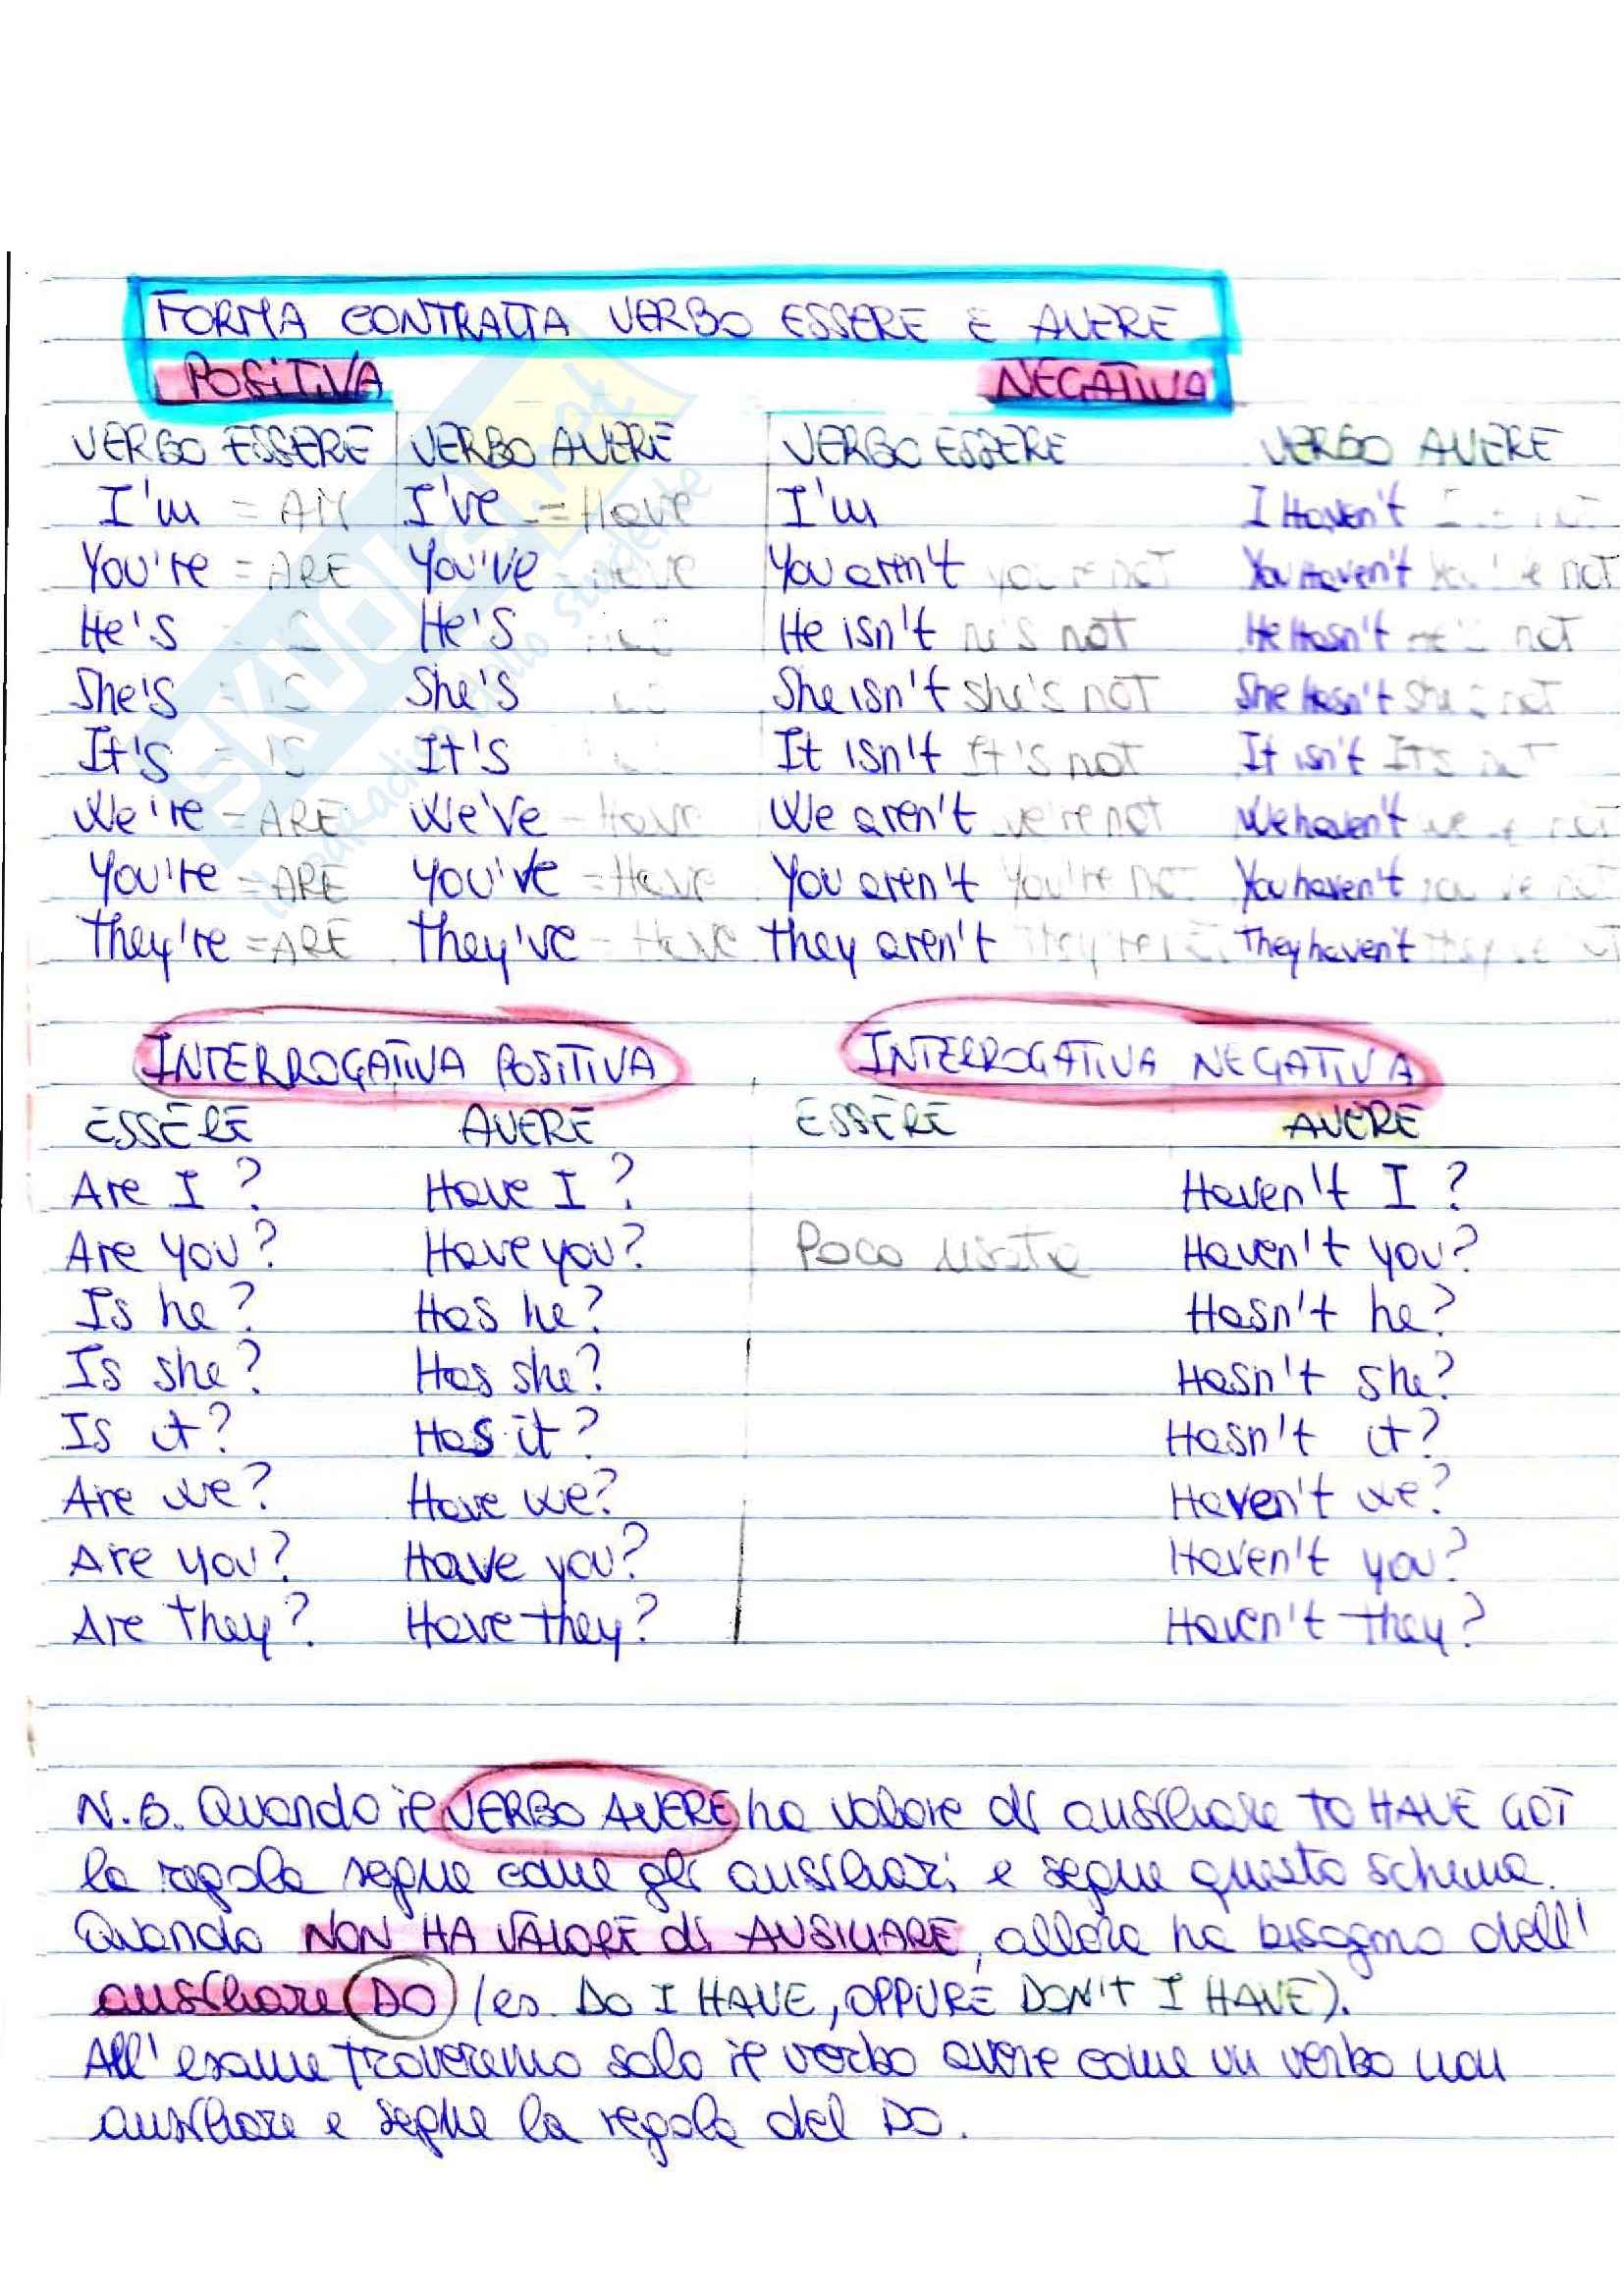 FORMA CONTRATTA VERBO ESSERE E AVERE
POSITIVA NEGATIVA
VERBO ESSERE VERBO AVERE VERBO ESSERE VERBO AVERE
I'm = AM I've = Have I'm I Haven't
You're = ARE You've You aren't not You Haven't not
He's He's He isn't he's not He Hasn't not
She's = IS She's She isn't she's not She Hasn't not
It's = IS It's It isn't It's not It isn't IT'S
We're = ARE We've - Have We aren't we're not We haven't
You're = ARE You've = Have You aren't You're You haven't
They're = ARE They've - Have They aren't They haven't
INTERROGATIVA POSITIVA INTERROGATIVA NEGATIVA
ESSERE AVERE ESSERE AVERE
Are I ? Have I ? Haven't I ?
Are you? Have you? Poco usata Haven't you?
Is he? Has he? Hasn't he?
Is she? Has she? Hasn't she?
Is it? Has it? Hasn't it?
Are we? Have we? Haven't we?
Are you? Have you? Haven't you?
Are they? Have they? Haven't they?
N.B. Quando il VERBO AVERE ha valore di ausiliare TO HAVE GOT
la regola segue come gli ausiliari e segue questo schema.
Quando NON HA VALORE di AUSILIARE, allora ha bisogno dell'
ausiliare DO (es. DO I HAVE, OPPURE DON'T I HAVE).
All'esame troveremo solo il verbo avere come un verbo non
ausiliare e segue la regola del DO.